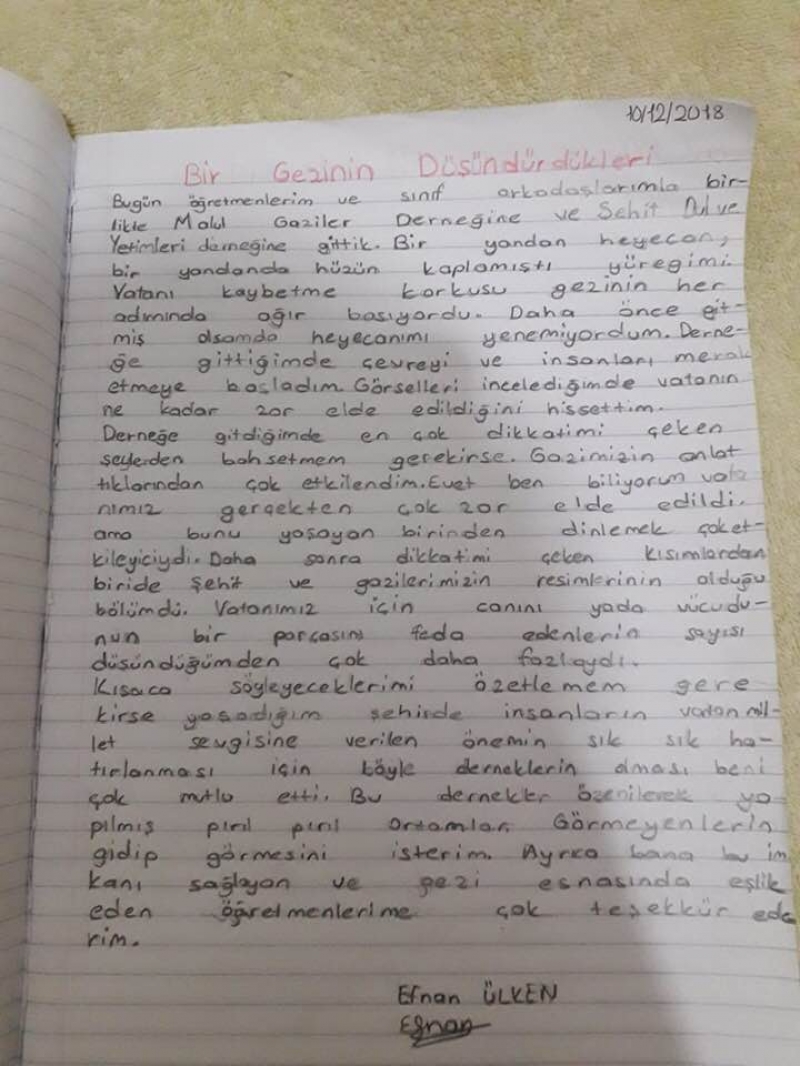 10/12/2018
Bir Gezinin Düşündürdükleri
Bugün öğretmenlerim ve sınıf arkadaşlarımla bir-
likte Malul Gaziler Derneğine ve Şehit Dul ve
Yetimleri derneğine gittik. Bir yandan heyecan,
bir yandanda hüzün kaplamıştı yüreğimi.
Vatanı kaybetme korkusu gezinin her
adımında ağır basıyordu. Daha önce git-
miş olsamda heyecanımı yenemiyordum. Derne-
ğe gittiğimde çevreyi ve insanları merak
etmeye başladım. Görselleri incelediğimde vatanın
ne kadar zor elde edildiğini hissettim.
Derneğe gitdiğimde en çok dikkatimi çeken
şeylerden bahsetmem gerekirse. Gazimizin anlat
tıklarından çok etkilendim. Evet ben biliyorum vata
nımız gerçekten çok zor elde edildi.
ama bunu yaşayan birinden dinlemek çok et-
kileyiciydi. Daha sonra dikkatimi çeken kısımlardan
biride şehit ve gazilerimizin resimlerinin olduğu
bölümdü. Vatanımız için canını yada vücudu-
nun bir parçasını feda edenlerin sayısı
düşündüğümden çok daha fazlaydı.
Kısaca söyleyeceklerimi özetlemem gere
kirse yaşadığım şehirde insanların vatan mil-
let sevgisine verilen önemin sık sık ha-
tırlanması için böyle derneklerin olması beni
çok mutlu etti. Bu dernekler özenilerek ya-
pılmış pırıl pırıl ortamlar. Görmeyenlerin
gidip görmesini isterim. Ayrıca bana bu im
kanı sağlayan ve gezi esnasında eşlik
eden öğretmenlerime çok teşekkür ede
rim.
Efnan ÜLKEN
Efnan